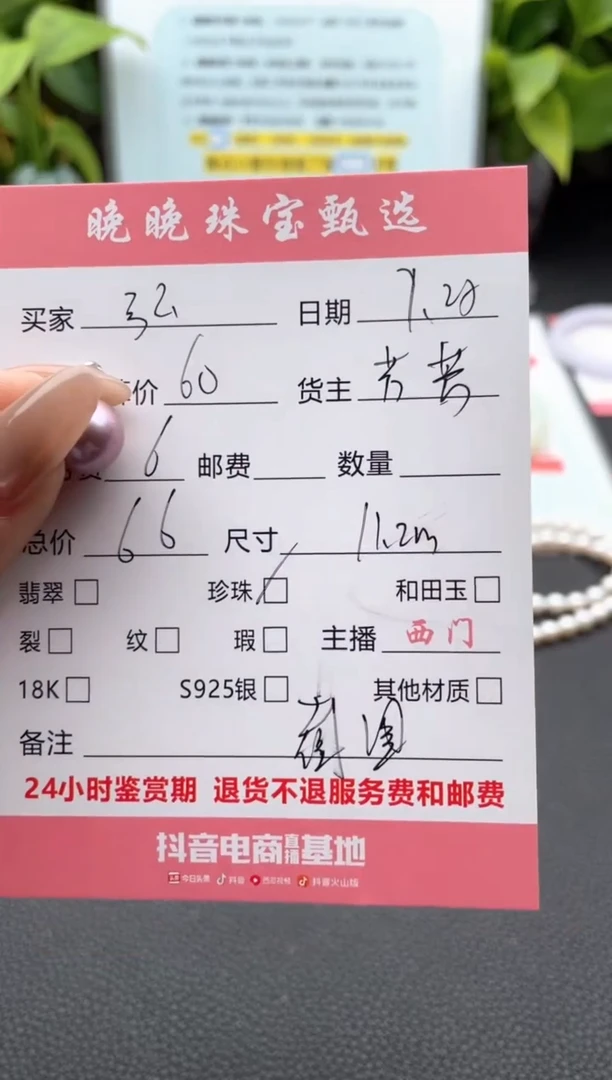 晚晚珠宝甄选
买家 弘 日期 7.28
价 60 货主
费 6 邮费 数量
总价 66 尺寸 11.2m
翡翠 珍珠 和田玉
裂 纹 瑕 主播 西门
18K S925银 其他材质
备注 圆
24小时鉴赏期 退货不退服务费和邮费
抖音电商直播基地
今日头条 抖音 西瓜视频 抖音火山版